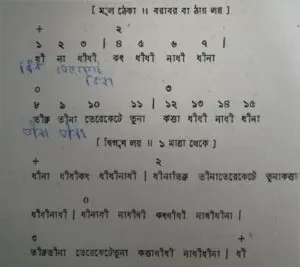 [ মূল ঠেকা ॥ বরাবর বা ঠায় লয় ]
+ ২
১ ২ ৩ | ৪ ৫ ৬ ৭ |
ধী না ধীধী কৎ ধীধী নাধী ধীনা
০ ৩
৮ ৯ ১০ ১১ | ১২ ১৩ ১৪ ১৫
তীক্র তীনা তেরেকেটে তুনা কত্তা ধীধী নাধী ধীনা
[ দ্বিগুণ লয় ॥ ১ মাত্রা থেকে ]
+ ২
ধীনা ধীধীকৎ ধীধীনাধী | ধীনাতিক্র তীনাতেরেকেটে তুনাকত্তা
০
ধীধীনাধী | ধীনাধী নাধীধী কৎধীধী নাধীধীনা |
৩ +
তীক্রতীনা তেরেকেটেতুনা কত্তাধীধী নাধীধীনা | ধী